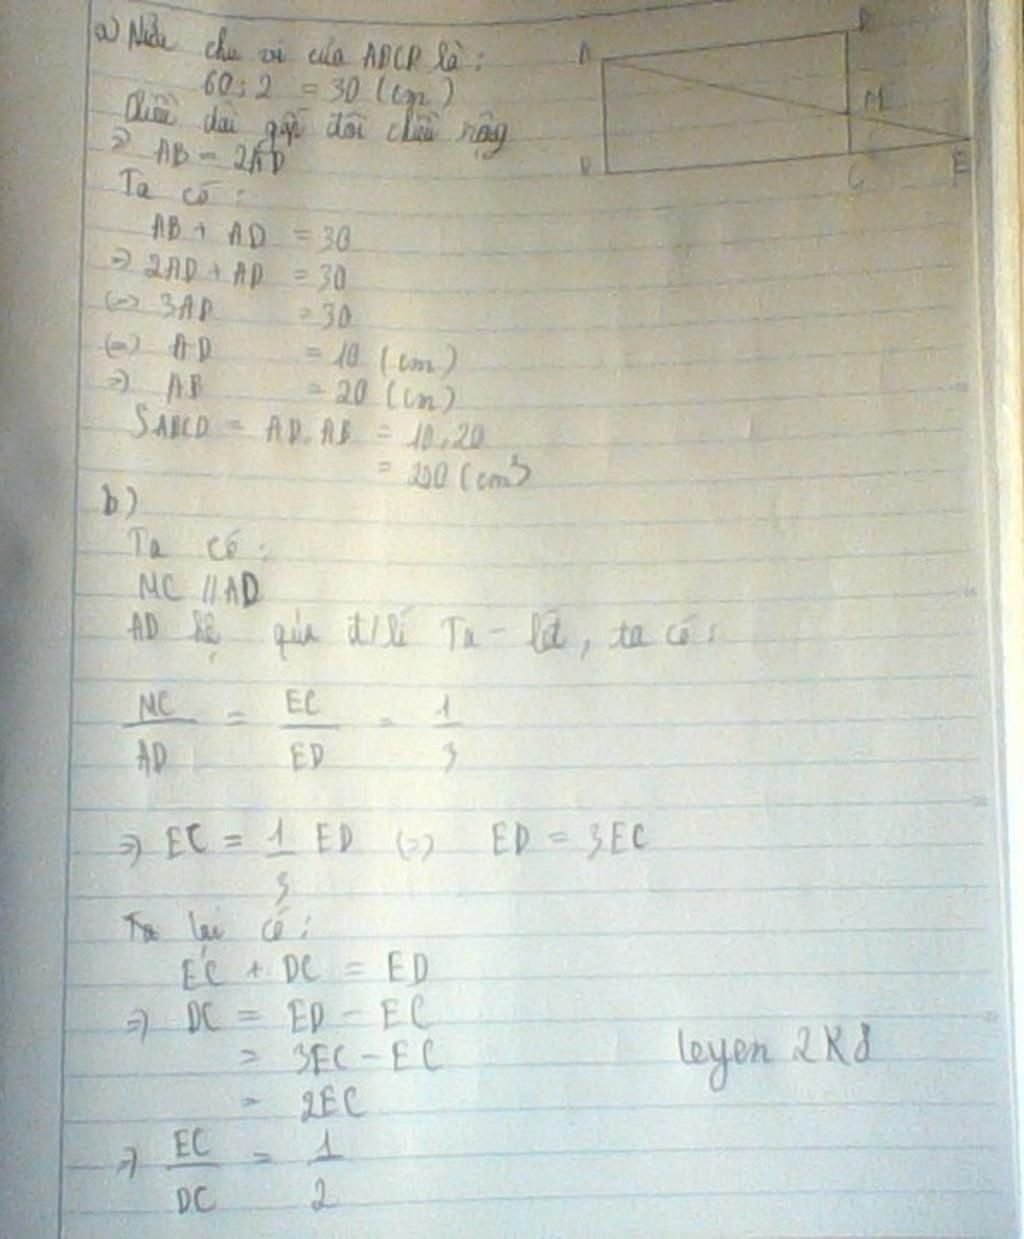 a) Nửa chu vi của ABCD là:
60:2 = 30 (cm)
Chiều dài gấp đôi chiều rộng
=> AB = 2AD
Ta có:
AB + AD = 30
=> 2AD + AD = 30
(=) 3AD = 30
(=) AD = 10 (cm)
=> AB = 20 (cm)
SABCD = AD.AB = 10.20
= 200 (cm²)
A
B
M
D
C
E
b)
Ta có:
MC // AD
AD hệ quả đ/lí Ta-lét, ta có:
MC/AD = EC/ED = 1/3
=> EC = 1/3 ED (=) ED = 3EC
Ta lại có:
EC + DC = ED
=> DC = ED - EC
= 3EC - EC
= 2EC
=> EC/DC = 1/2
leyen 2K8